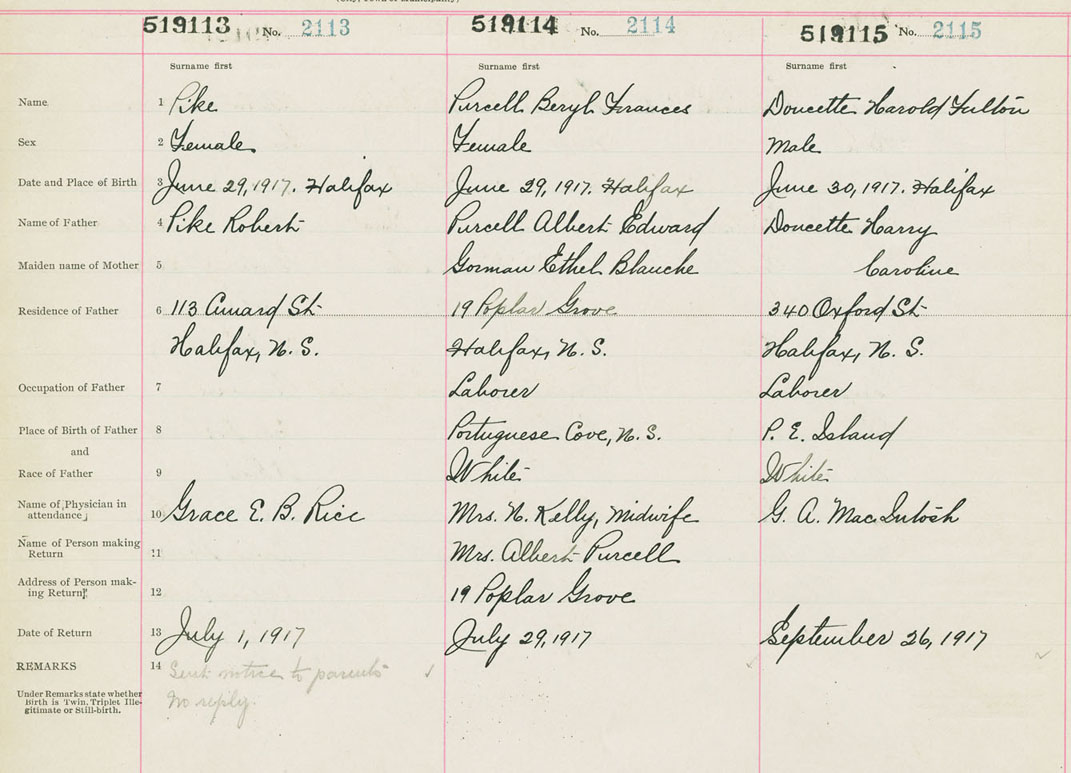 519113 No. 2113 519114 No. 2114 519115 No. 2115
Surname first Surname first Surname first
Name 1 Pike Purcell Beryl Frances Doucette Harold Fulton
Sex 2 Female Female Male
Date and Place of Birth 3 June 29, 1917. Halifax June 29, 1917. Halifax June 30, 1917. Halifax
Name of Father 4 Pike Robert Purcell Albert Edward Doucette Harry
Maiden name of Mother 5 Gorman Ethel Blanche Caroline
Residence of Father 6 113 Cunard St 19 Poplar Grove 340 Oxford St
Halifax, N. S. Halifax, N. S. Halifax, N. S.
Occupation of Father 7 Laborer Laborer
Place of Birth of Father 8 Portuguese Cove, N. S. P. E. Island
and
Race of Father 9 White White
Name of Physician in
attendance 10 Grace E. B. Rice Mrs. N. Kelly, Midwife G. A. MacIntosh
Name of Person making
Return 11 Mrs. Albert Purcell
Address of Person mak-
ing Return 12 19 Poplar Grove
Date of Return 13 July 1, 1917 July 29, 1917 September 26, 1917
REMARKS 14 Sent notice to parents
Under Remarks state whether
Birth is Twin, Triplet Ille- No reply.
gitimate or Still-birth.